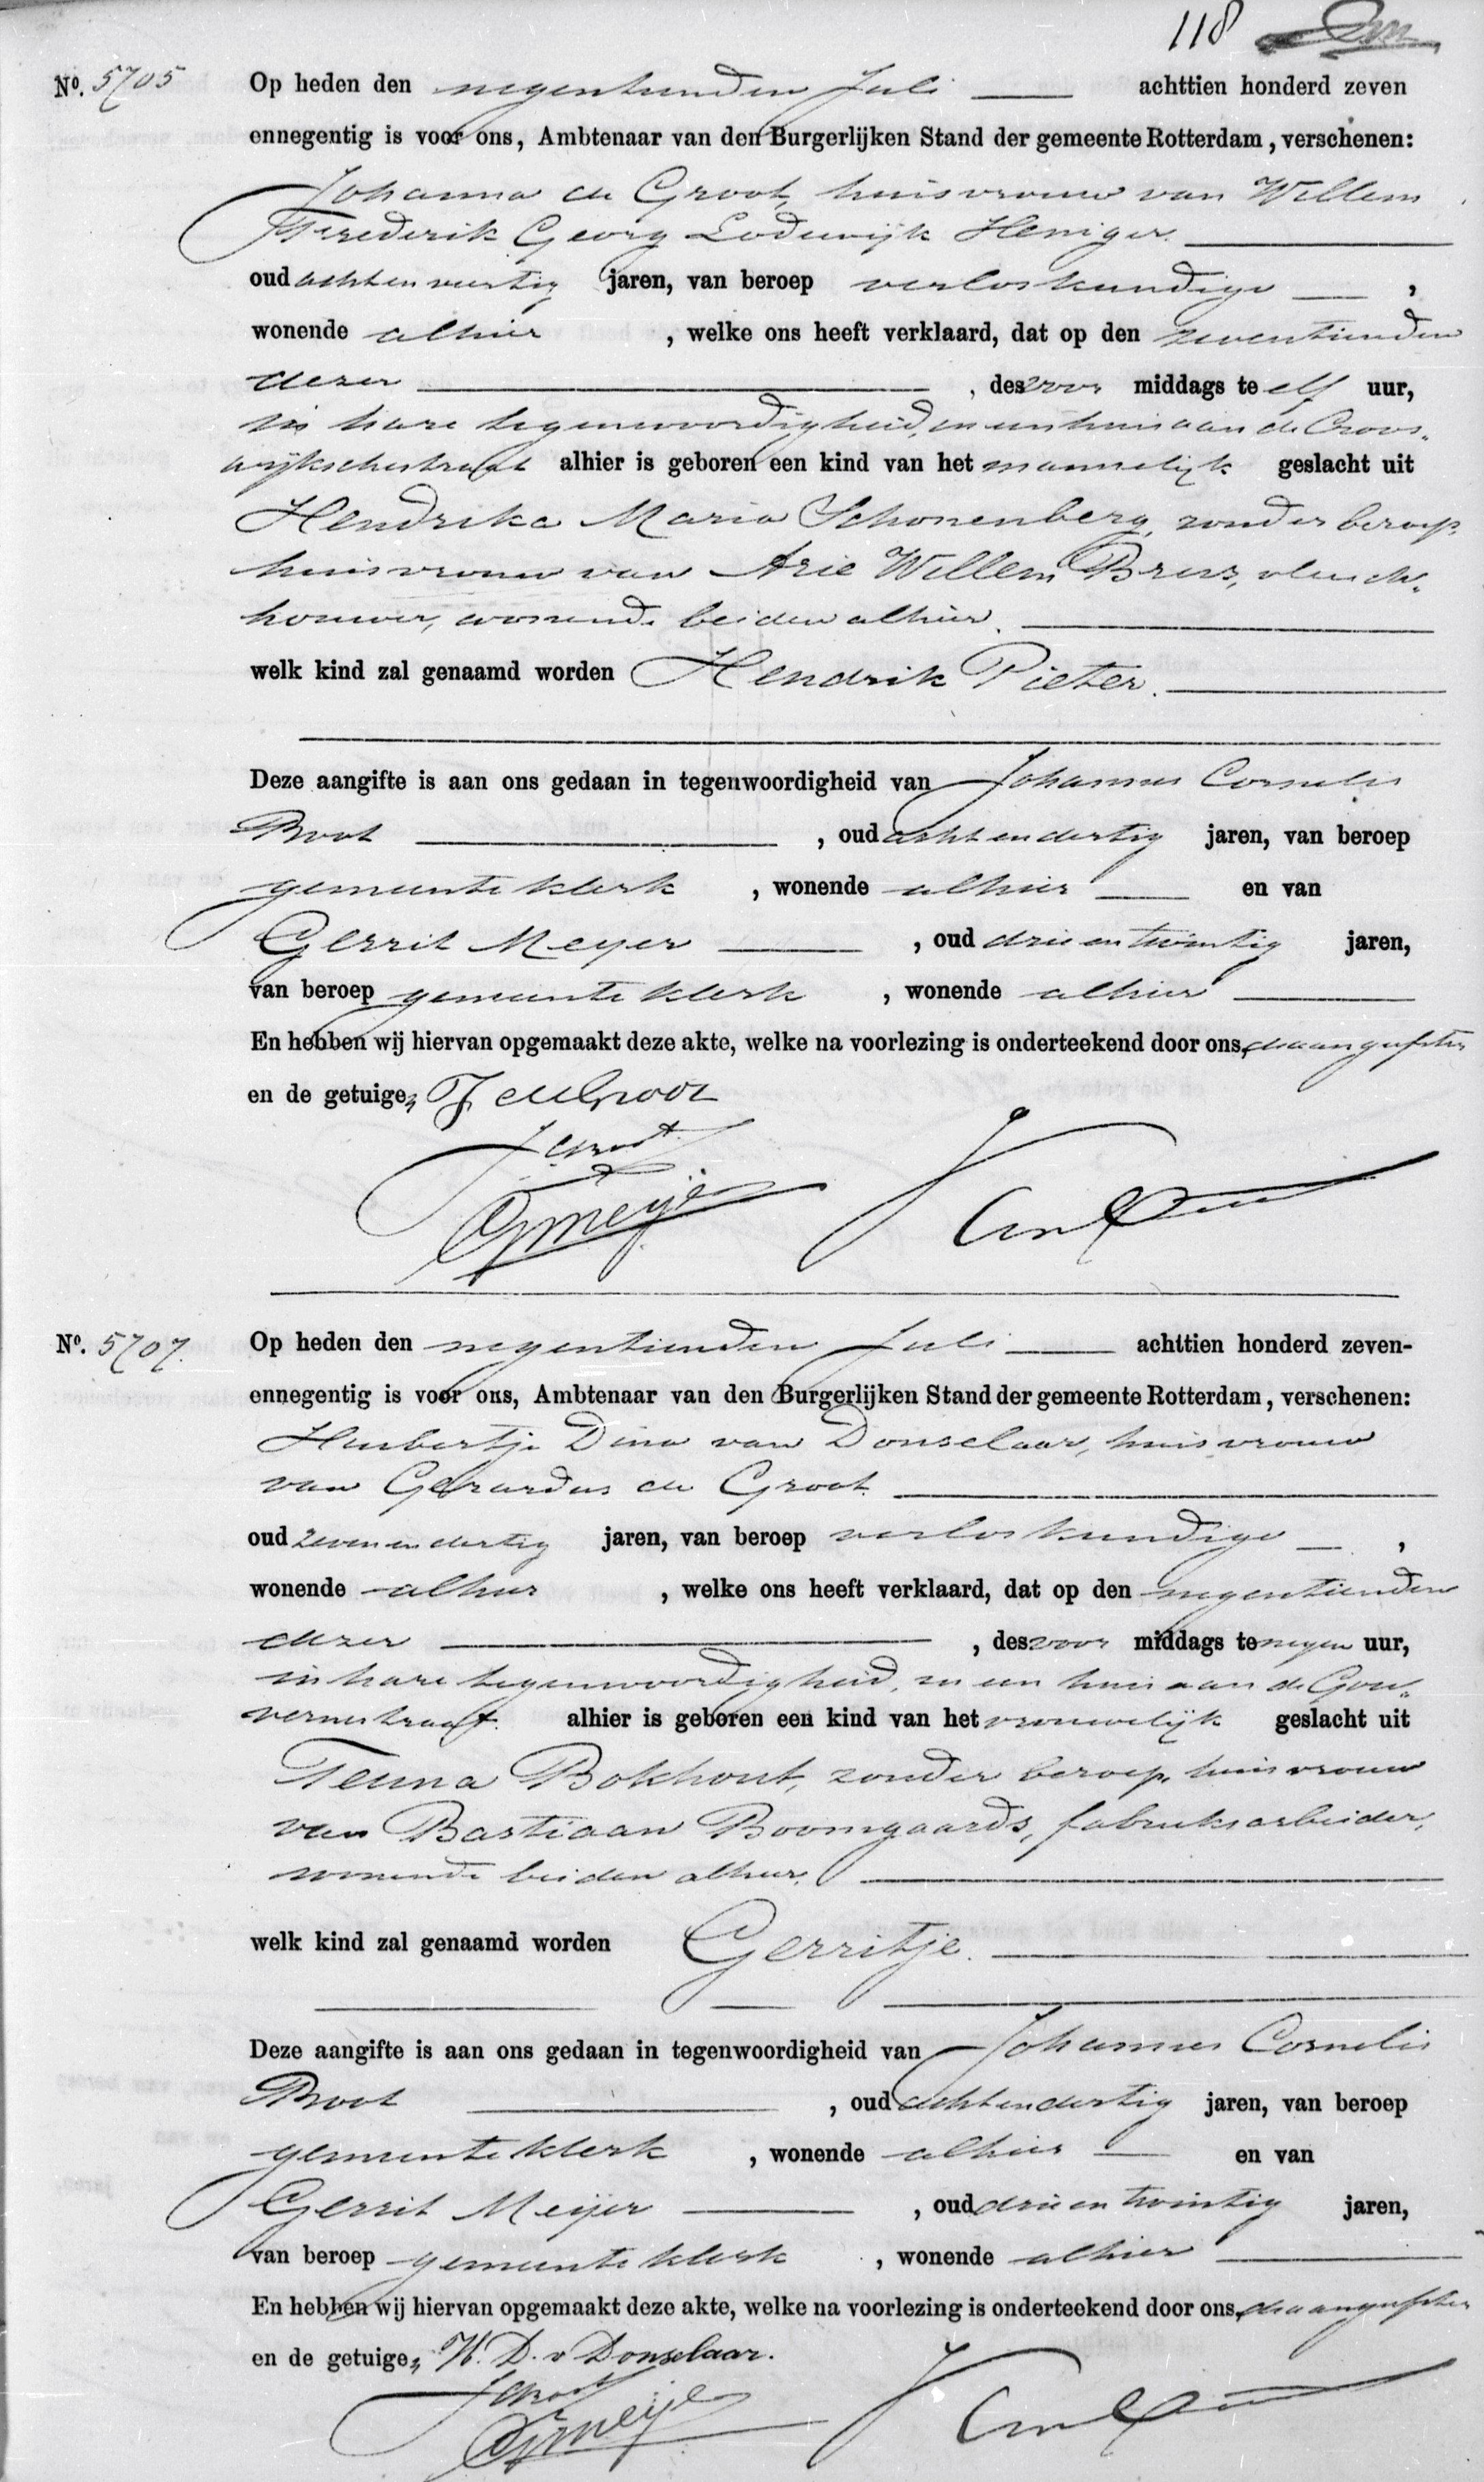 118
No. 5705 Op heden den negentienden Juli achttien honderd zeven
ennegentig is voor ons, Ambtenaar van den Burgerlijken Stand der gemeente Rotterdam, verschenen:
Johanna de Groot, huisvrouw van Willem
Frederik Georg Lodewijk Heniger.
oud achtenveertig jaren, van beroep verloskundige ,
wonende alhier , welke ons heeft verklaard, dat op den zeventienden
dezer , des voor middags te elf uur,
in hare tegenwoordigheid, in een huis aan de Croos„
wijkschestraat alhier is geboren een kind van het mannelijk geslacht uit
Hendrika Maria Schonenberg, zonder beroep,
huisvrouw van Arie Willem vleesch„
houwer, wonende beiden alhier.
welk kind zal genaamd worden Hendrik Pieter.
Deze aangifte is aan ons gedaan in tegenwoordigheid van Johannes Cornelis
Broot , oud achtendertig jaren, van beroep
gemeente klerk , wonende alhier en van
Gerrit Meyer , oud drieentwintig jaren,
van beroep gemeente klerk , wonende alhier
En hebben wij hiervan opgemaakt deze akte, welke na voorlezing is onderteekend door ons, de aangeefster
en de getuigen J de Groot
JCBroot
GMeijer
No. 5707. Op heden den negentienden Juli achttien honderd zeven-
ennegentig is voor ons, Ambtenaar van den Burgerlijken Stand der gemeente Rotterdam, verschenen:
Huibertje Dina van Donselaar, huisvrouw
van Gerardus de Groot
oud zevenendertig jaren, van beroep verloskundige ,
wonende alhier , welke ons heeft verklaard, dat op den negentienden
dezer , des voor middags te negen uur,
in hare tegenwoordigheid, in een huis aan de Gou„
vernestraat. alhier is geboren een kind van het vrouwelijk geslacht uit
Teuna Bokhout, zonder beroep, huisvrouw
van Bastiaan Boomgaards, fabrieksarbeider,
wonende beiden alhier.
welk kind zal genaamd worden Gerritje.
Deze aangifte is aan ons gedaan in tegenwoordigheid van Johannes Cornelis
Broot , oud achtendertig jaren, van beroep
gemeente klerk , wonende alhier en van
Gerrit Meijer , oud drieentwintig jaren,
van beroep gemeente klerk , wonende alhier
En hebben wij hiervan opgemaakt deze akte, welke na voorlezing is onderteekend door ons, de aangeefster
en de getuigen H. D. v Donselaar.
JCBroot
GMeijer